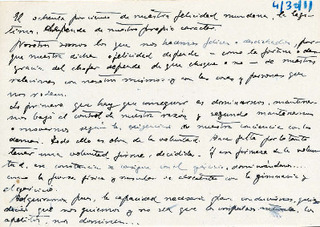 4/3/11
El ochenta por ciento de nuestra felicidad mundana, la legí-
tima, depende de nuestro propio carácter.
Nosotros somos los que nos hacemos felices o desdichados, por
que nuestra dicha o felicidad depende - como la fortuna o des
gracia del chofer depende de que choque o no - de nuestras
relaciones con nosotros mismos y con las cosas y personas que
nos rodean.
Lo primero que hay que conseguir es dominarnos, mantener-
nos bajo el control de nuestra razón y segundo mantenernos
o movernos según la exigencia de nuestra conciencia con los
demás. Todo ello es obra de la voluntad. Hace falta por lo tanto
tener una voluntad firme, decidida. Y se forma de la volun
tad, en constancia, dominándonos...
como la fuerza física y muscular se acrecienta con la gimnasia y
el ejercicio.
Adquiramos pues, la capacidad necesaria para conducirnos, quiere
decir que nos guiemos y no dejar que la impulsen los
apetitos, nos dominen...